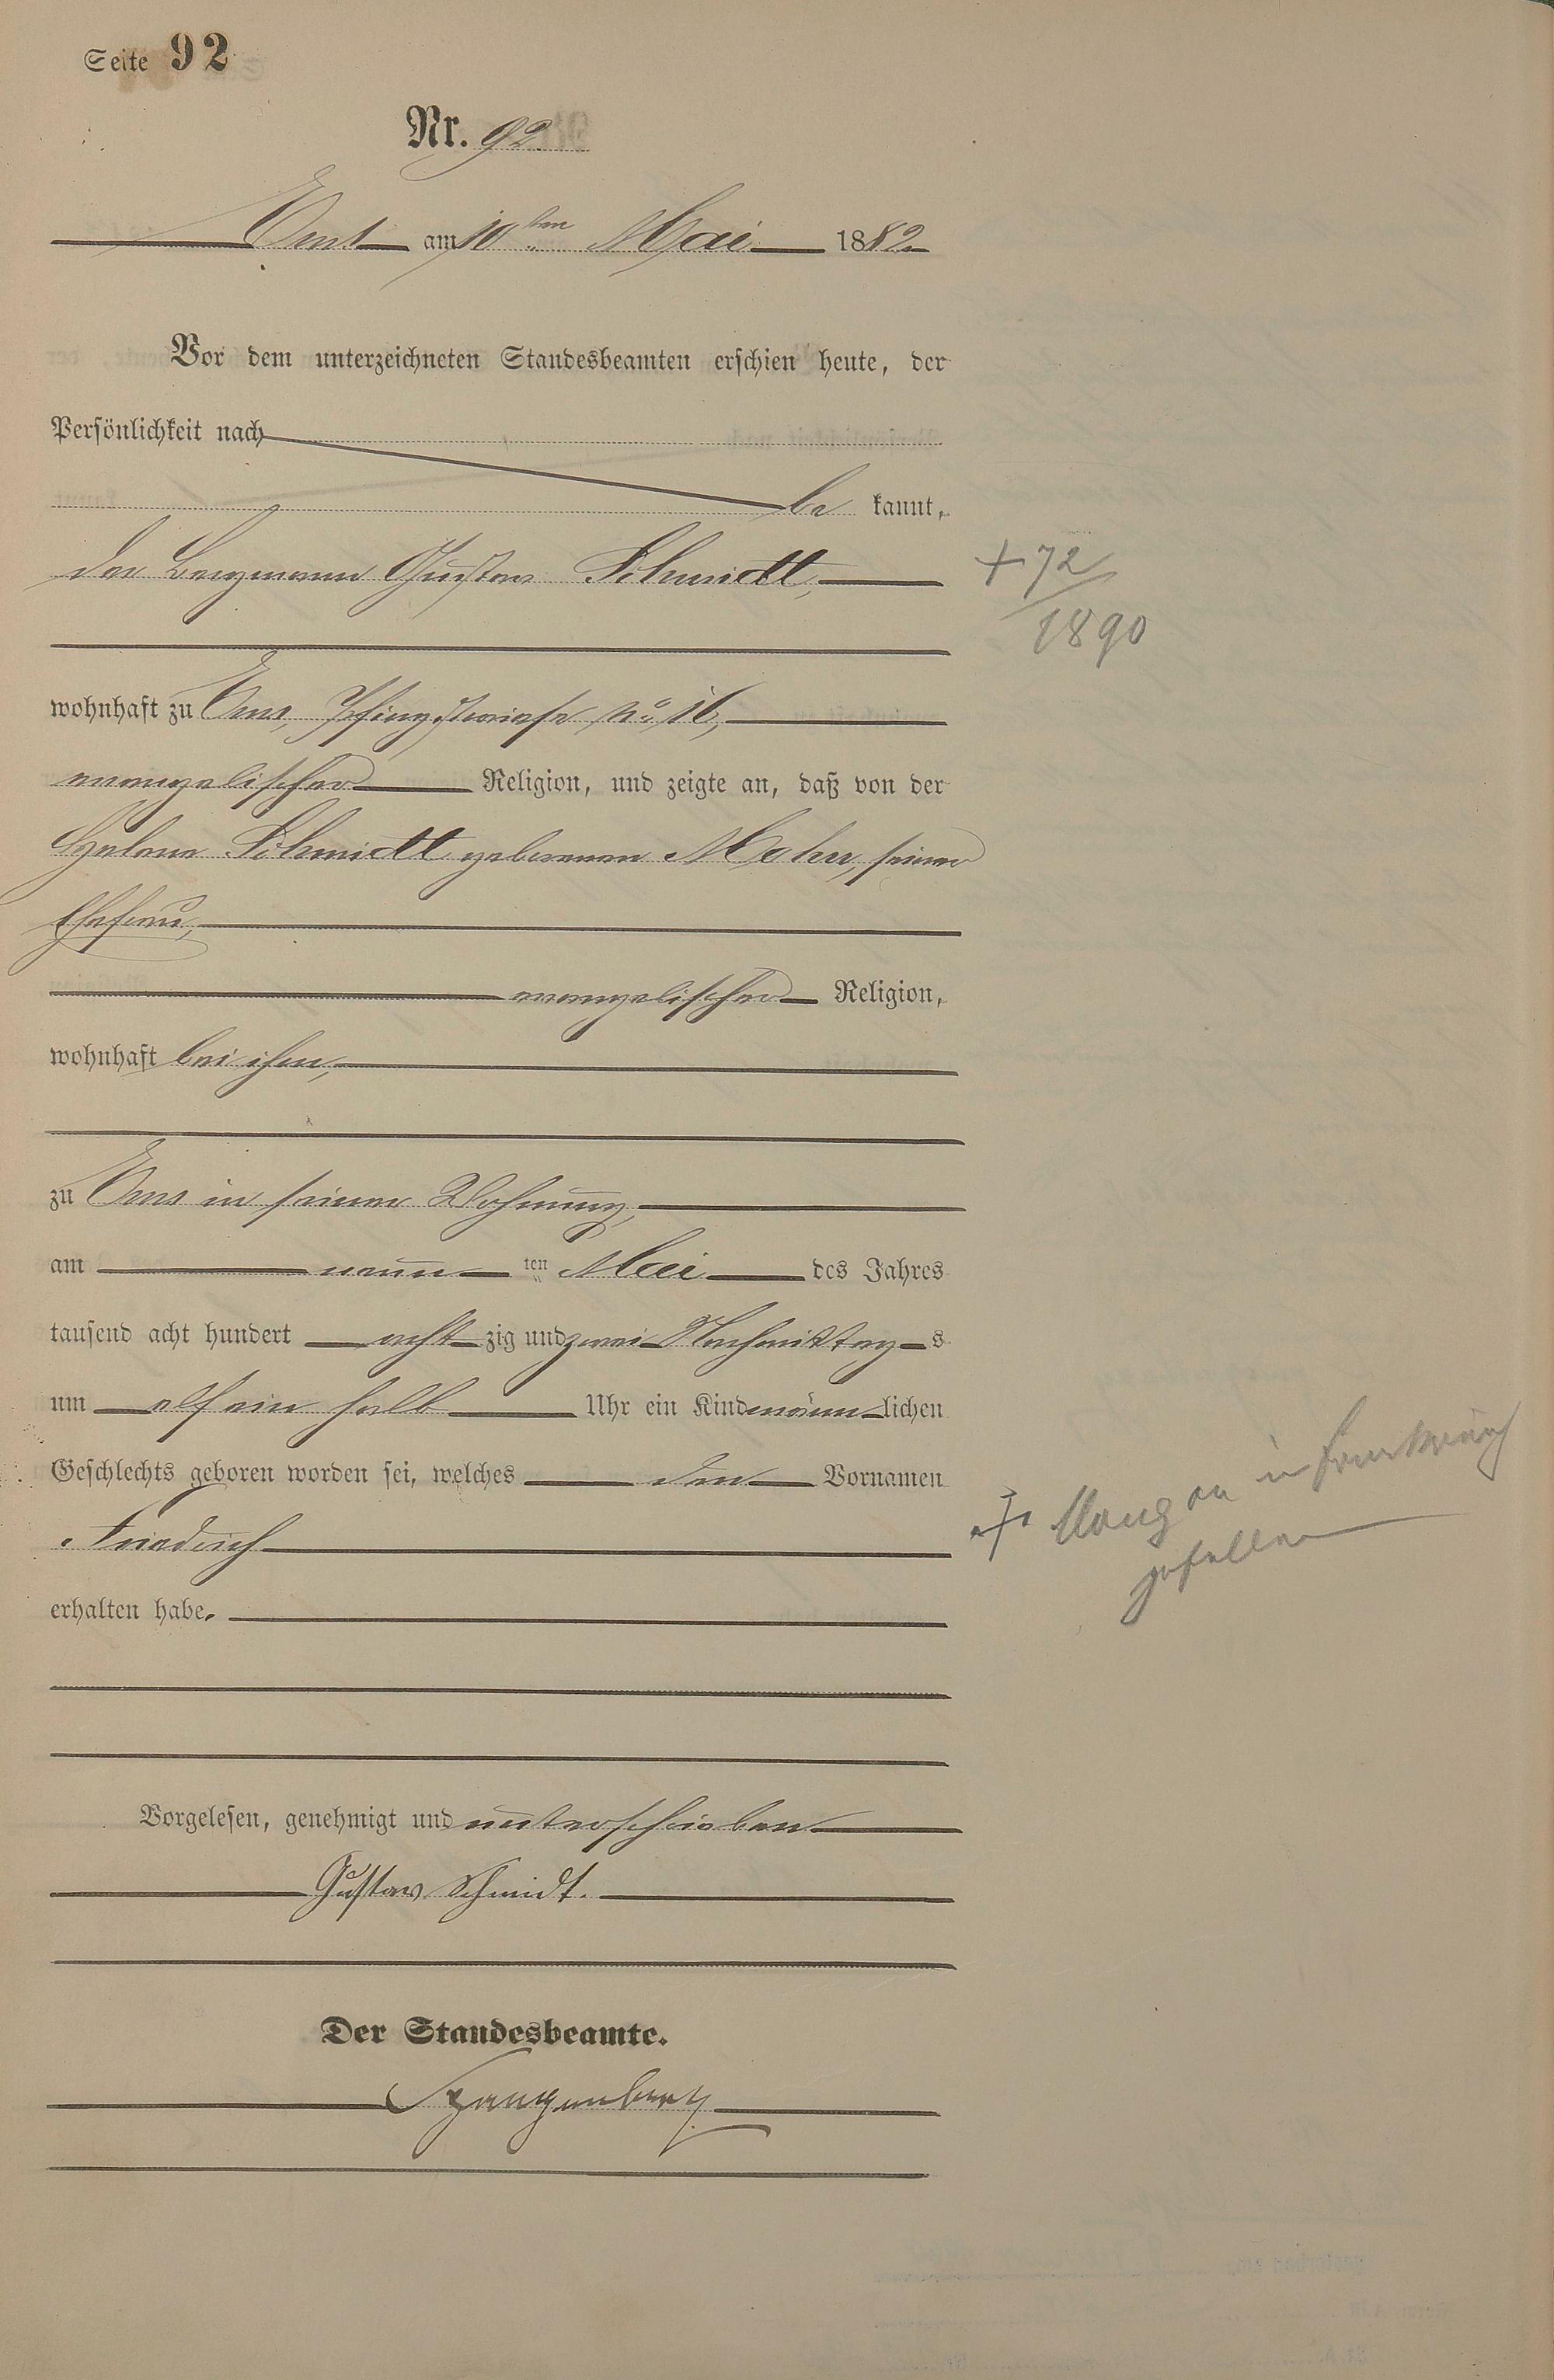 Seite 92
Nr. 92
Ems am 10ten Mai 1882
Vor dem unterzeichneten Standesbeamten erschien heute, der
Persönlichkeit nach
be kannt,
der Bergmann Gustav Schmidt,
+ 72
1890
wohnhaft zu Ems, Pfingstwiese No 16,
evangelischer Religion, und zeigte an, daß von der
Helene Schmidt geborenen Mohr, seiner
Ehefrau,
evangelischer Religion,
wohnhaft bei ihm,
zu Ems in seiner Wohnung,
am neun ten Mai des Jahres
tausend acht hundert acht zig und zwei Nachmittag s
um elf ein halb Uhr ein Kind männ lichen
Geschlechts geboren worden sei, welches den Vornamen
Friedrich
+ in Frankreich
gefallen
erhalten habe.
Vorgelesen, genehmigt und unterschrieben
Gustav Schmidt.
Der Standesbeamte.
Spangenberg